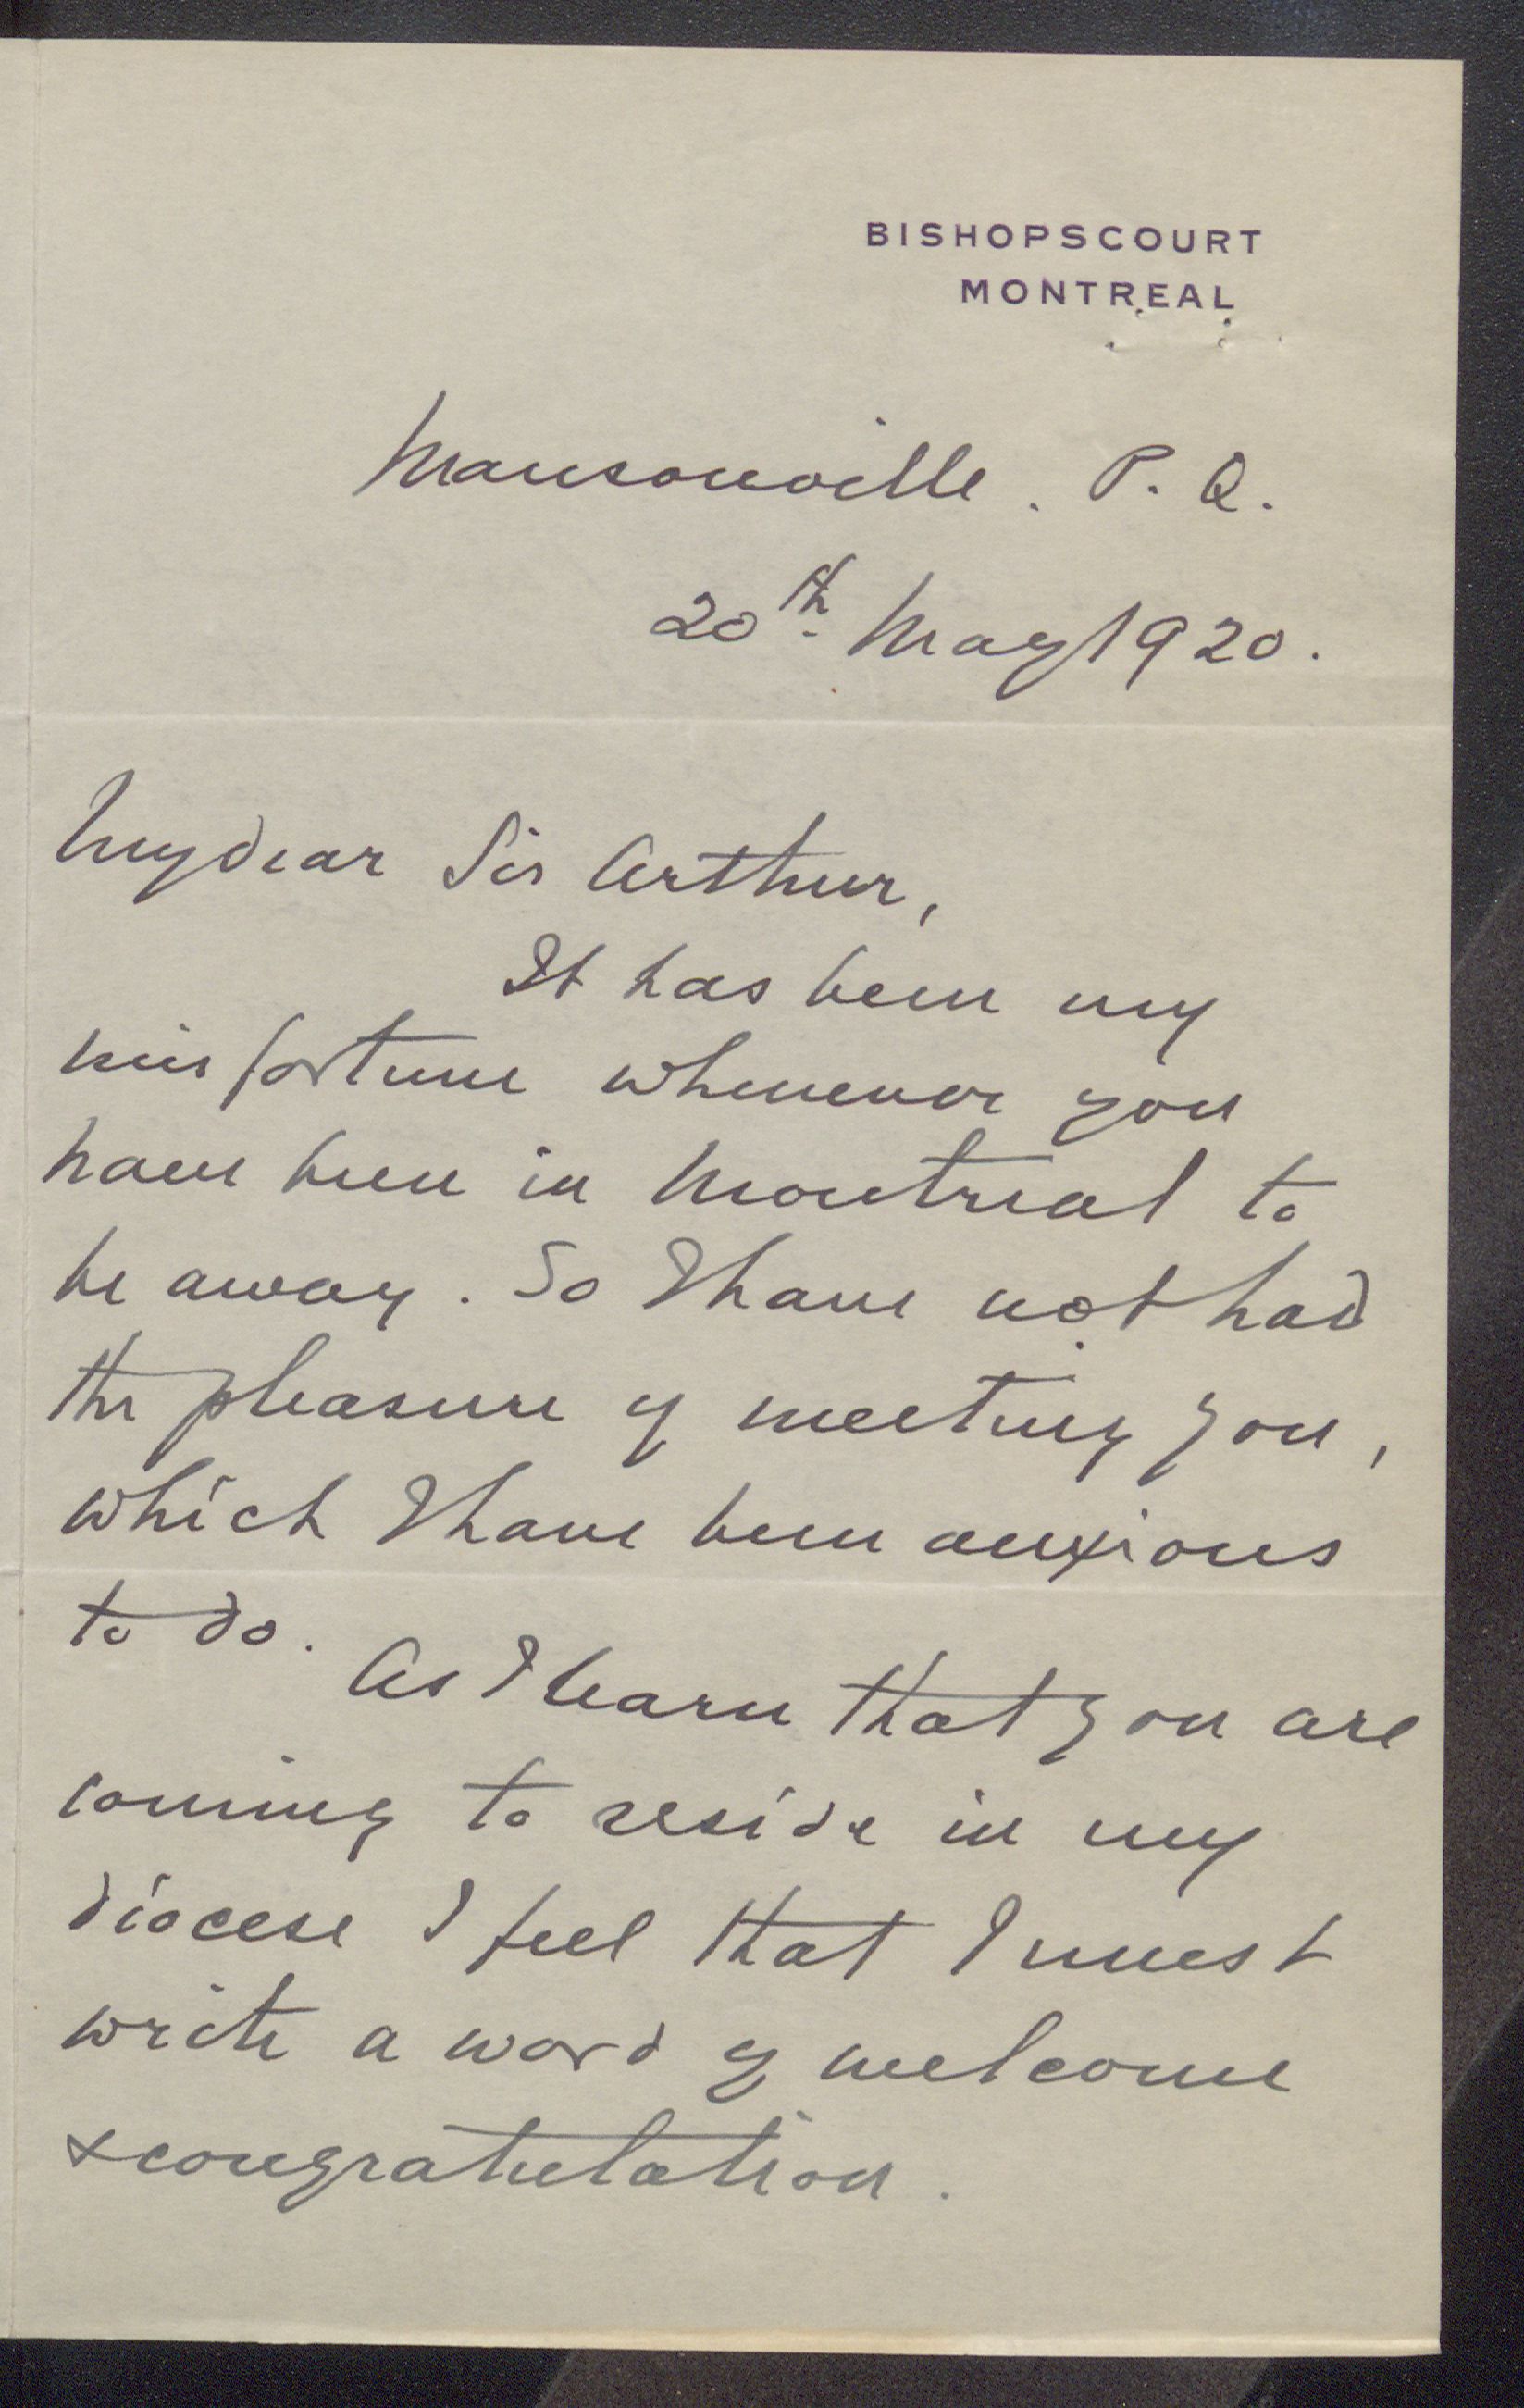 BISHOPSCOURT
MONTREAL
Mansonville. P. Q.
20th. May 1920.
My dear Sir Arthur,
It has been my
misfortune whenever you
have been in Montreal to
be away. So I have not had
the pleasure of meeting you,
which I have been anxious
to do.
As I learn that you are
coming to reside in my
diocese I feel that I must
write a word of welcome
& congratulation.